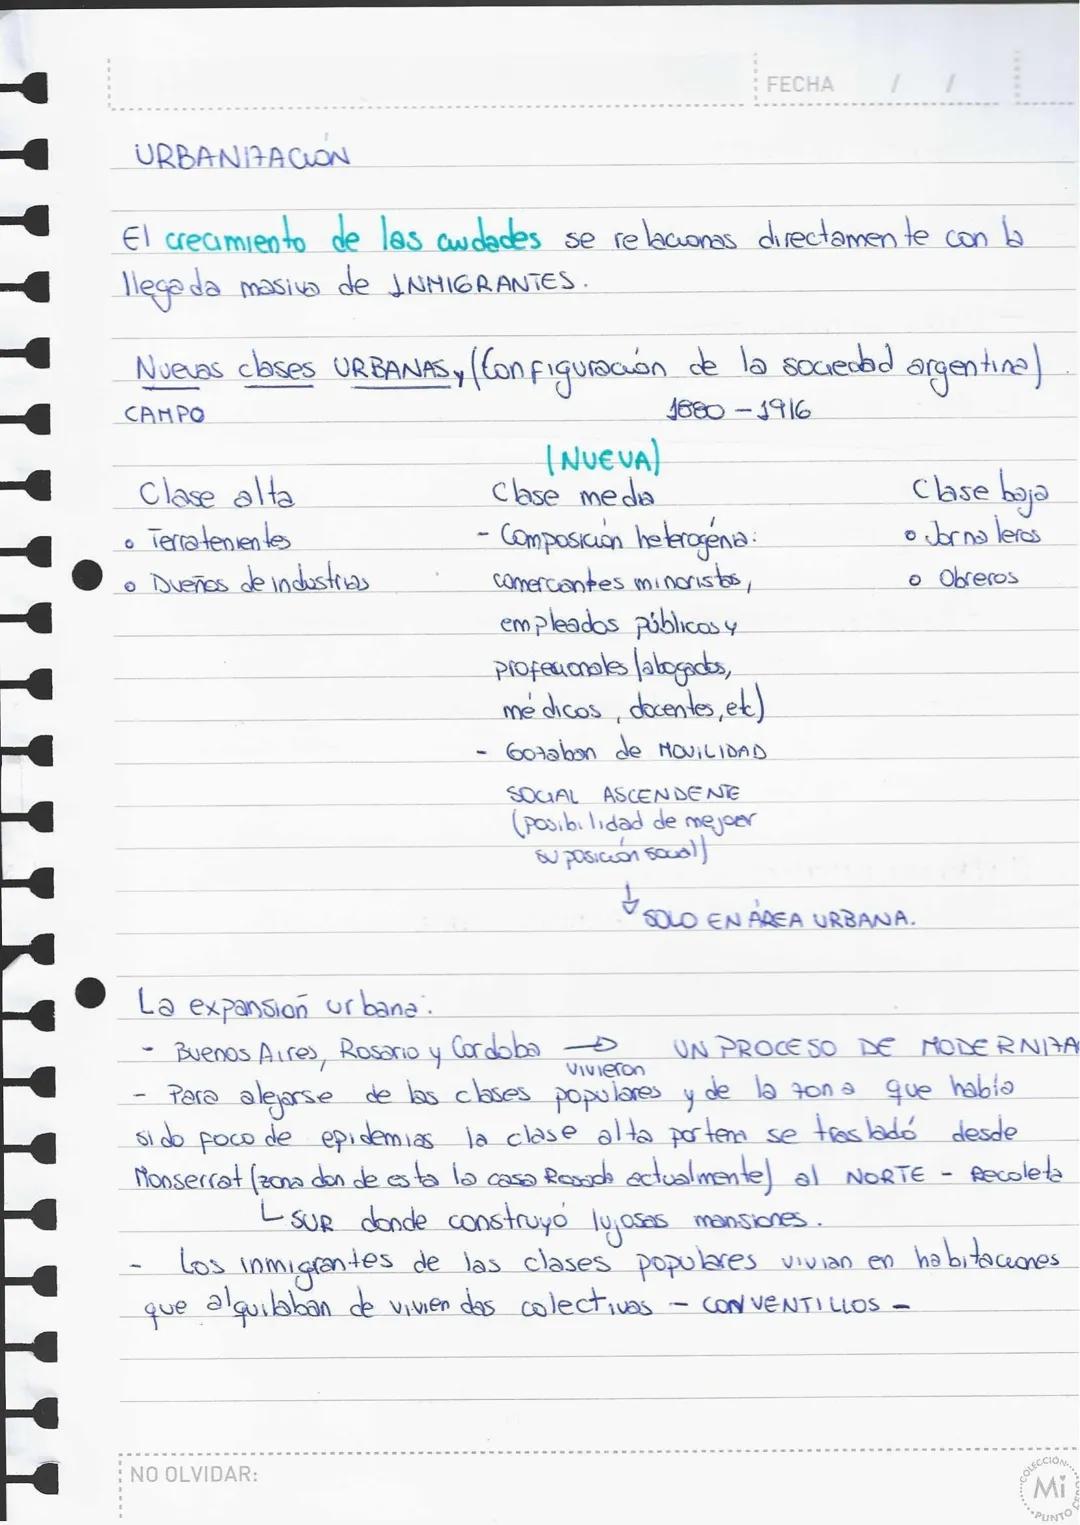 FECHA / /
URBANIZACIÓN
El crecimiento de las ciudades se relacionas directamente con la
llegada masiva de INMIGRANTES.
Nuevas clases URBANAS, (Configuración de la sociedad argentina)
CAMPO 1880-1916
(NUEVA)
Clase alta Clase media Clase baja
• Terratenientes - Composición heterogénea: • Jornaleros
• Dueños de industrias comerciantes minoristas, • Obreros
empleados públicos y
profesionales (abogados,
médicos, docentes, etc)
- Gozaban de MOVILIDAD
SOCIAL ASCENDENTE
(posibilidad de mejorar
su posición social)
↓ SOLO EN ÁREA URBANA.
La expansión urbana:
- Buenos Aires, Rosario y Cordoba → UN PROCESO DE MODERNIZA
vivieron
- Para alejarse de las clases populares y de la zona que había
sido foco de epidemias la clase alta porteña se trasladó desde
Monserrat (zona donde esta la casa Rosada actualmente) al NORTE - Recoleta
↳ SUR donde construyó lujosas mansiones.
- Los inmigrantes de las clases populares vivian en habitaciones
que alquilaban de viviendas colectivas - CONVENTILLOS -
NO OLVIDAR:
COLECCIÓN
Mi
PUNTO